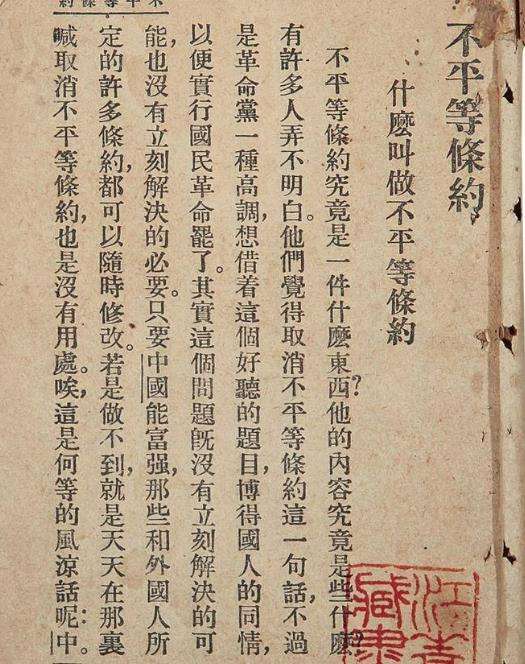 不平等條約
什麽叫做不平等條約
不平等條約究竟是一件什麽東西?他的內容究竟是些什麽?
有許多人弄不明白。他們覺得取消不平等條約這一句話,不過
是革命黨一種高調,想借着這個好聽的題目,博得國人的同情,
以便實行國民革命罷了。其實這個問題旣沒有立刻解決的可
能,也沒有立刻解決的必要。只要中國能富强,那些和外國人所
定的許多條約,都可以隨時修改。若是做不到,就是天天在那裏
喊取消不平等條約,也是沒有用處。唉,這是何等的風涼話呢:中。
不平等條約